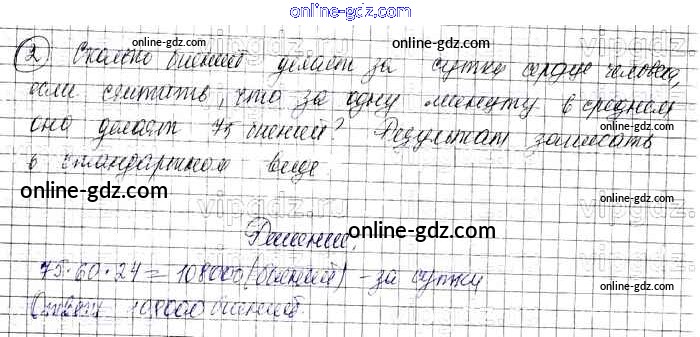 online-gdz.com
② Сколько биений делает за сутки сердце человека,
online-gdz.com online-gdz.com
если считать, что за одну минуту в среднем
оно делает 75 биений? Результат записать
в стандартном виде.
online-gdz.com
Решение.
online-gdz.com
75·60·24=108000(биений) - за сутки
Ответ: 108000 биений.
online-gdz.com online-gdz.com